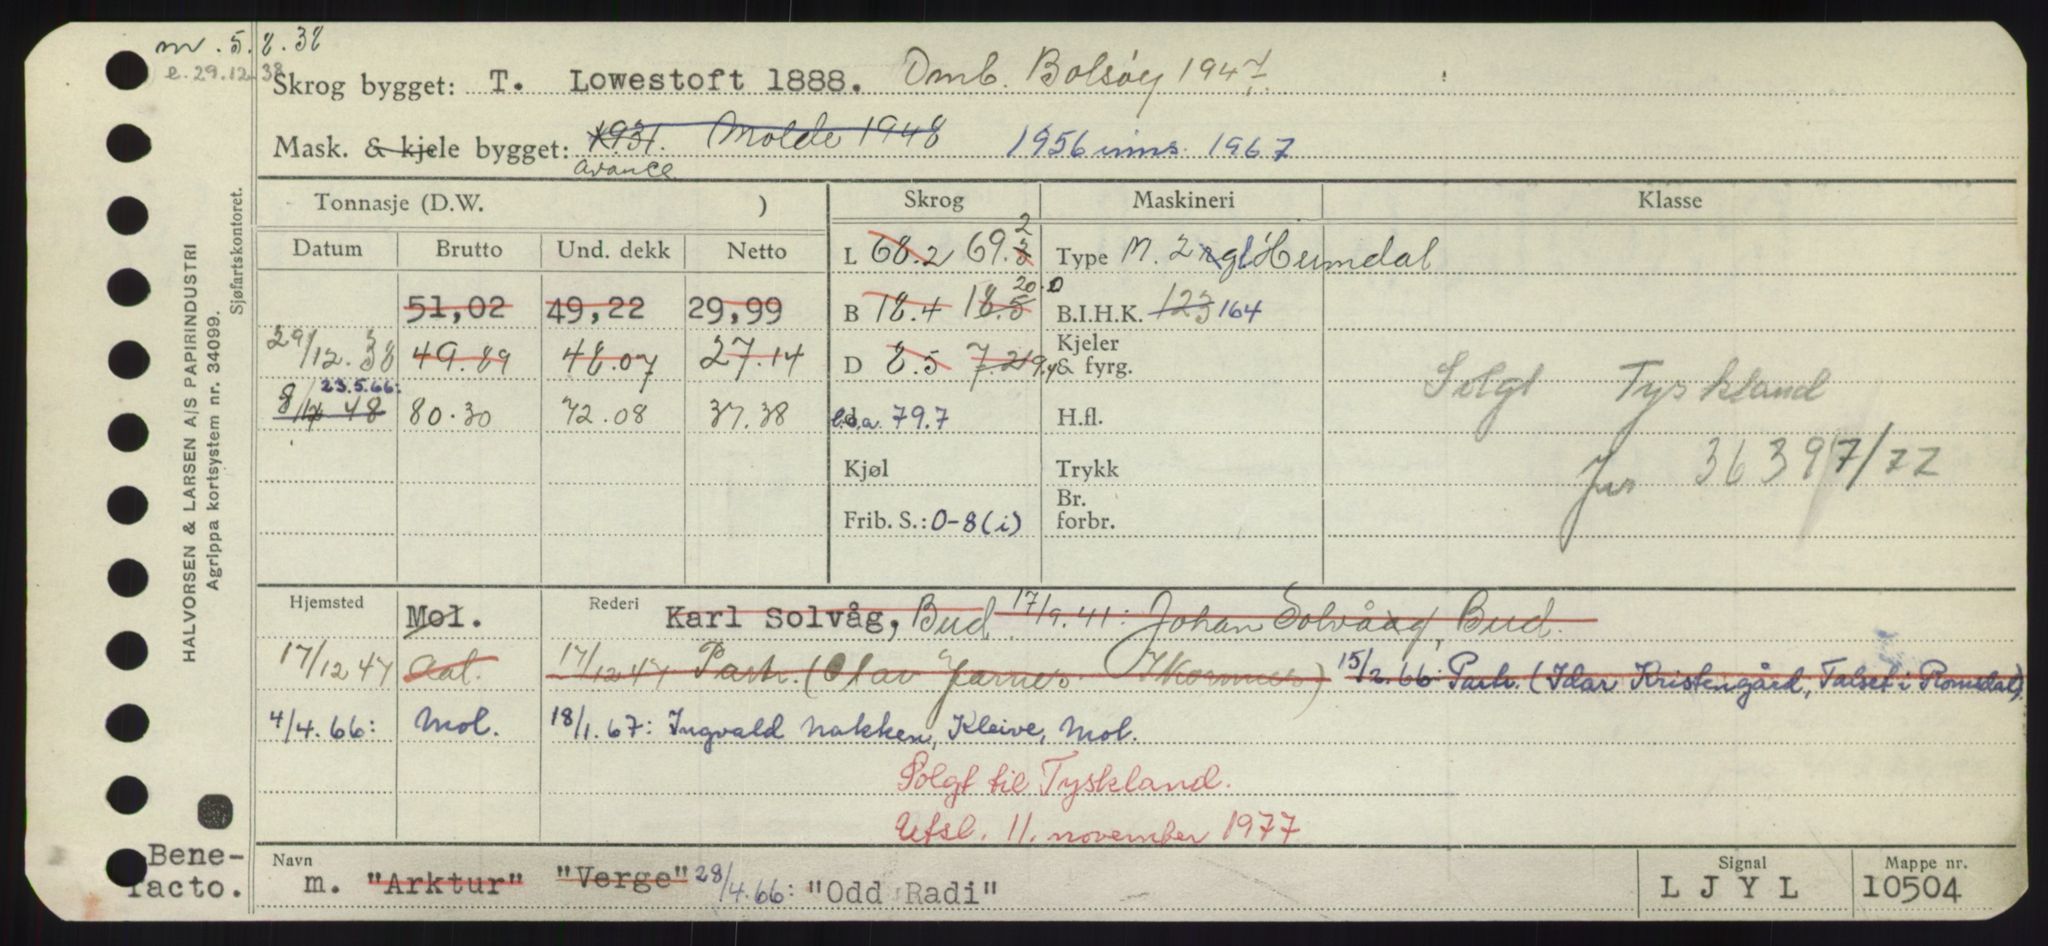 m. 5.8.38
e. 29.12.38
Skrog bygget: T. Lowestoft 1888. Omb. Bolsøy 1947.
Mask. & kjele bygget: 1931. Molde 1948 1956 inns. 1967
Avance
Tonnasje (D.W. ) Skrog Maskineri Klasse
Datum Brutto Und. dekk Netto L 68.2 69.3 2 Type M. 2 Heimdal
51,02 49,22 29,99 B 18.4 18.5 20.0 B.I.H.K. 123 164
29/12.38 49.89 48.07 27.14 D 8.5 7.2 9.4 Kjeler & fyrg.
Solgt Tyskland
8/12 48 23.5.66: 80.30 72.08 37.38 l.o.a. 79.7 H.fl.
Kjøl Trykk
Jnr 36397/77
Frib. S.: 0-8(i) Br. forbr.
Hjemsted Mol. Rederi Karl Solvåg, Bud 17/9.41: Johan Solvåg, Bud.
17/12 47 Aal. 17/12 47 Partr. (Olav Jarnes 15/2.66: Partr. (Idar Kristengård, Talset i Romsdal)
4/4.66: Mol. 18/1.67: Ingvald Nakken, Kleive, Mol.
Solgt til Tyskland.
Utsl. 11. november 1977
Bene-
facto.
Navn m. "Arktur" "Verge" 28/4.66: "Odd Radi"
Signal LJYL
Mappe nr. 10504
HALVORSEN & LARSEN A/S PAPIRINDUSTRI
Agrippa kortsystem nr. 34099.
Sjøfartskontoret.